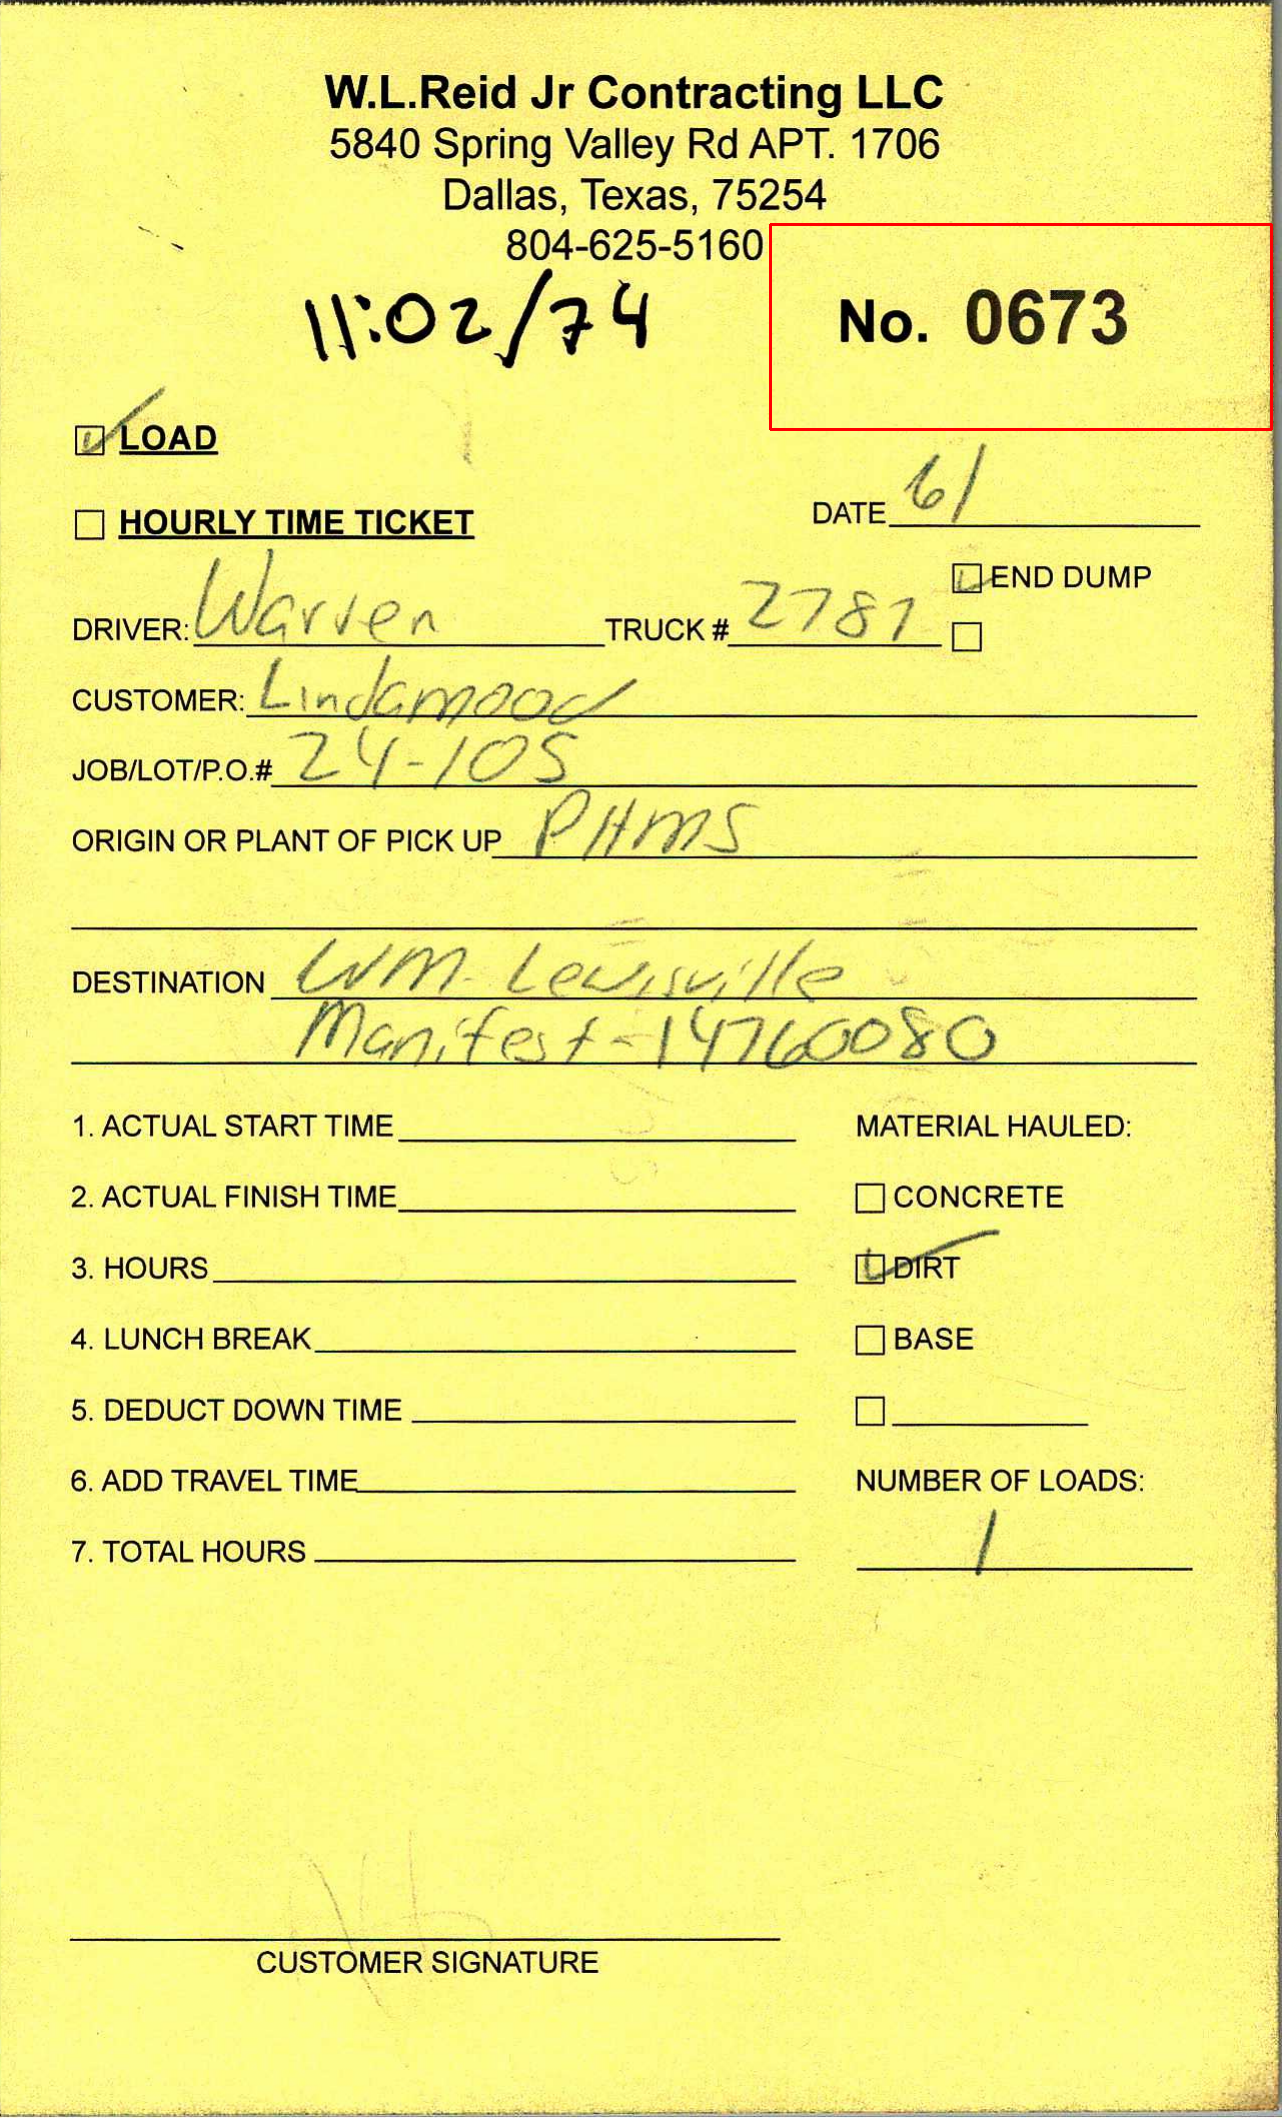 W.L.Reid Jr Contracting LLC
5840 Spring Valley Rd APT. 1706
Dallas, Texas, 75254
804-625-5160
11:02/74
No. 0673
LOAD
HOURLY TIME TICKET
DATE 6/
END DUMP
DRIVER: Warren TRUCK # 2781
CUSTOMER: Lindamood
JOB/LOT/P.O.# 24-105
ORIGIN OR PLANT OF PICK UP PHMS
DESTINATION WM-Lewisville
Manifest-14760080
1. ACTUAL START TIME
MATERIAL HAULED:
2. ACTUAL FINISH TIME
CONCRETE
3. HOURS
DIRT
4. LUNCH BREAK
BASE
5. DEDUCT DOWN TIME
6. ADD TRAVEL TIME
NUMBER OF LOADS:
7. TOTAL HOURS
1
CUSTOMER SIGNATURE